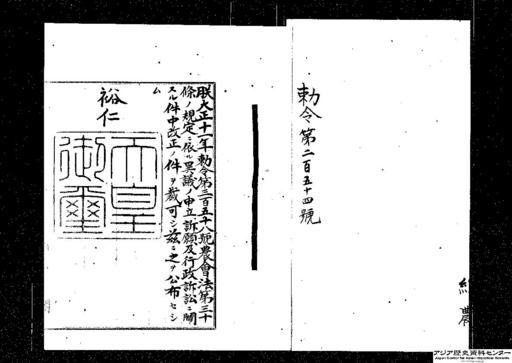 勅令第二百五十四號
朕大正十一年勅令第三百五十八號農會法第三十
條ノ規定ニ依ル異議ノ申立、訴願及行政訴訟ニ關
スル件中改正ノ件ヲ裁可シ茲ニ之ヲ公布セシ
ム
裕仁
天皇
御璽
アジア歴史資料センター
Japan Center for Asian Historical Records